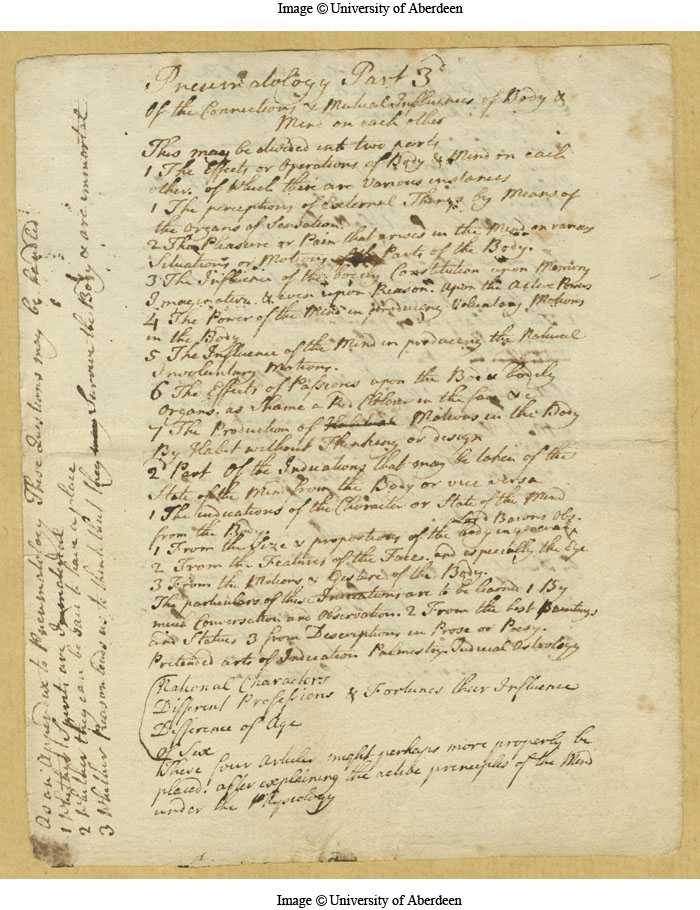 Image © University of Aberdeen
Pneumatology Part 3d
Of the Connections & Mutual Influences of Body &
Mind on each other
This may be divided into two parts
1 The Effects or Operations of Body & Mind on each
other. of Which there are Various instances
1 The perceptions of External Things by Means of
the Organs of Sensation.
2 The Pleasure or Pain that arises in the Mind on various
Situations or Motions of the Parts of the Body.
3 The Influence of the bodily Constitution upon Memory
Imagination. & even upon Reason. upon the Active Powers
4 The Power of the Mind in producing Voluntary Motions
in the Body
5 The Influence of the Mind in producing the Natural
Involuntary Motions.
6 The Effects of Passions upon the Body & bodily
Organs. as Shame a Red Colour in the face &c
7 The Production of Habitual Motions in the Body
By Habit without Thinking or design
2d Part Of the Indications that may be taken of the
State of the Mind from the Body or vice versa
1 The indications of the Character or State of the Mind
from the Body. Lord Bacons Obs.
1 From the Size & proportions of the body in general
2 From the Features of the Face. and especially the Eye
3 From the Motions & Gesture of the Body.
The particulars of these Indications are to be learned 1 By
much Conversation and Observation. 2 From the best Paintings
and Statues 3 from Descriptions in Prose or Poesy.
Pretended arts of Indication Palmestry. Judicial Astrology
National Characters
Different Professions & Fortunes their Influence
Difference of Age
of Sex
These four Articles might perhaps more properly be
placed. after explaining the active principles of the Mind
under the Physiology
As an Appendix to Pneumatology These Questions may be handled
1 Whether Spirits are Immaterial
2 Whether they can be said to have a place
3 Whether Reason leads us to think that they may Survive the Body & are immortal
Image © University of Aberdeen